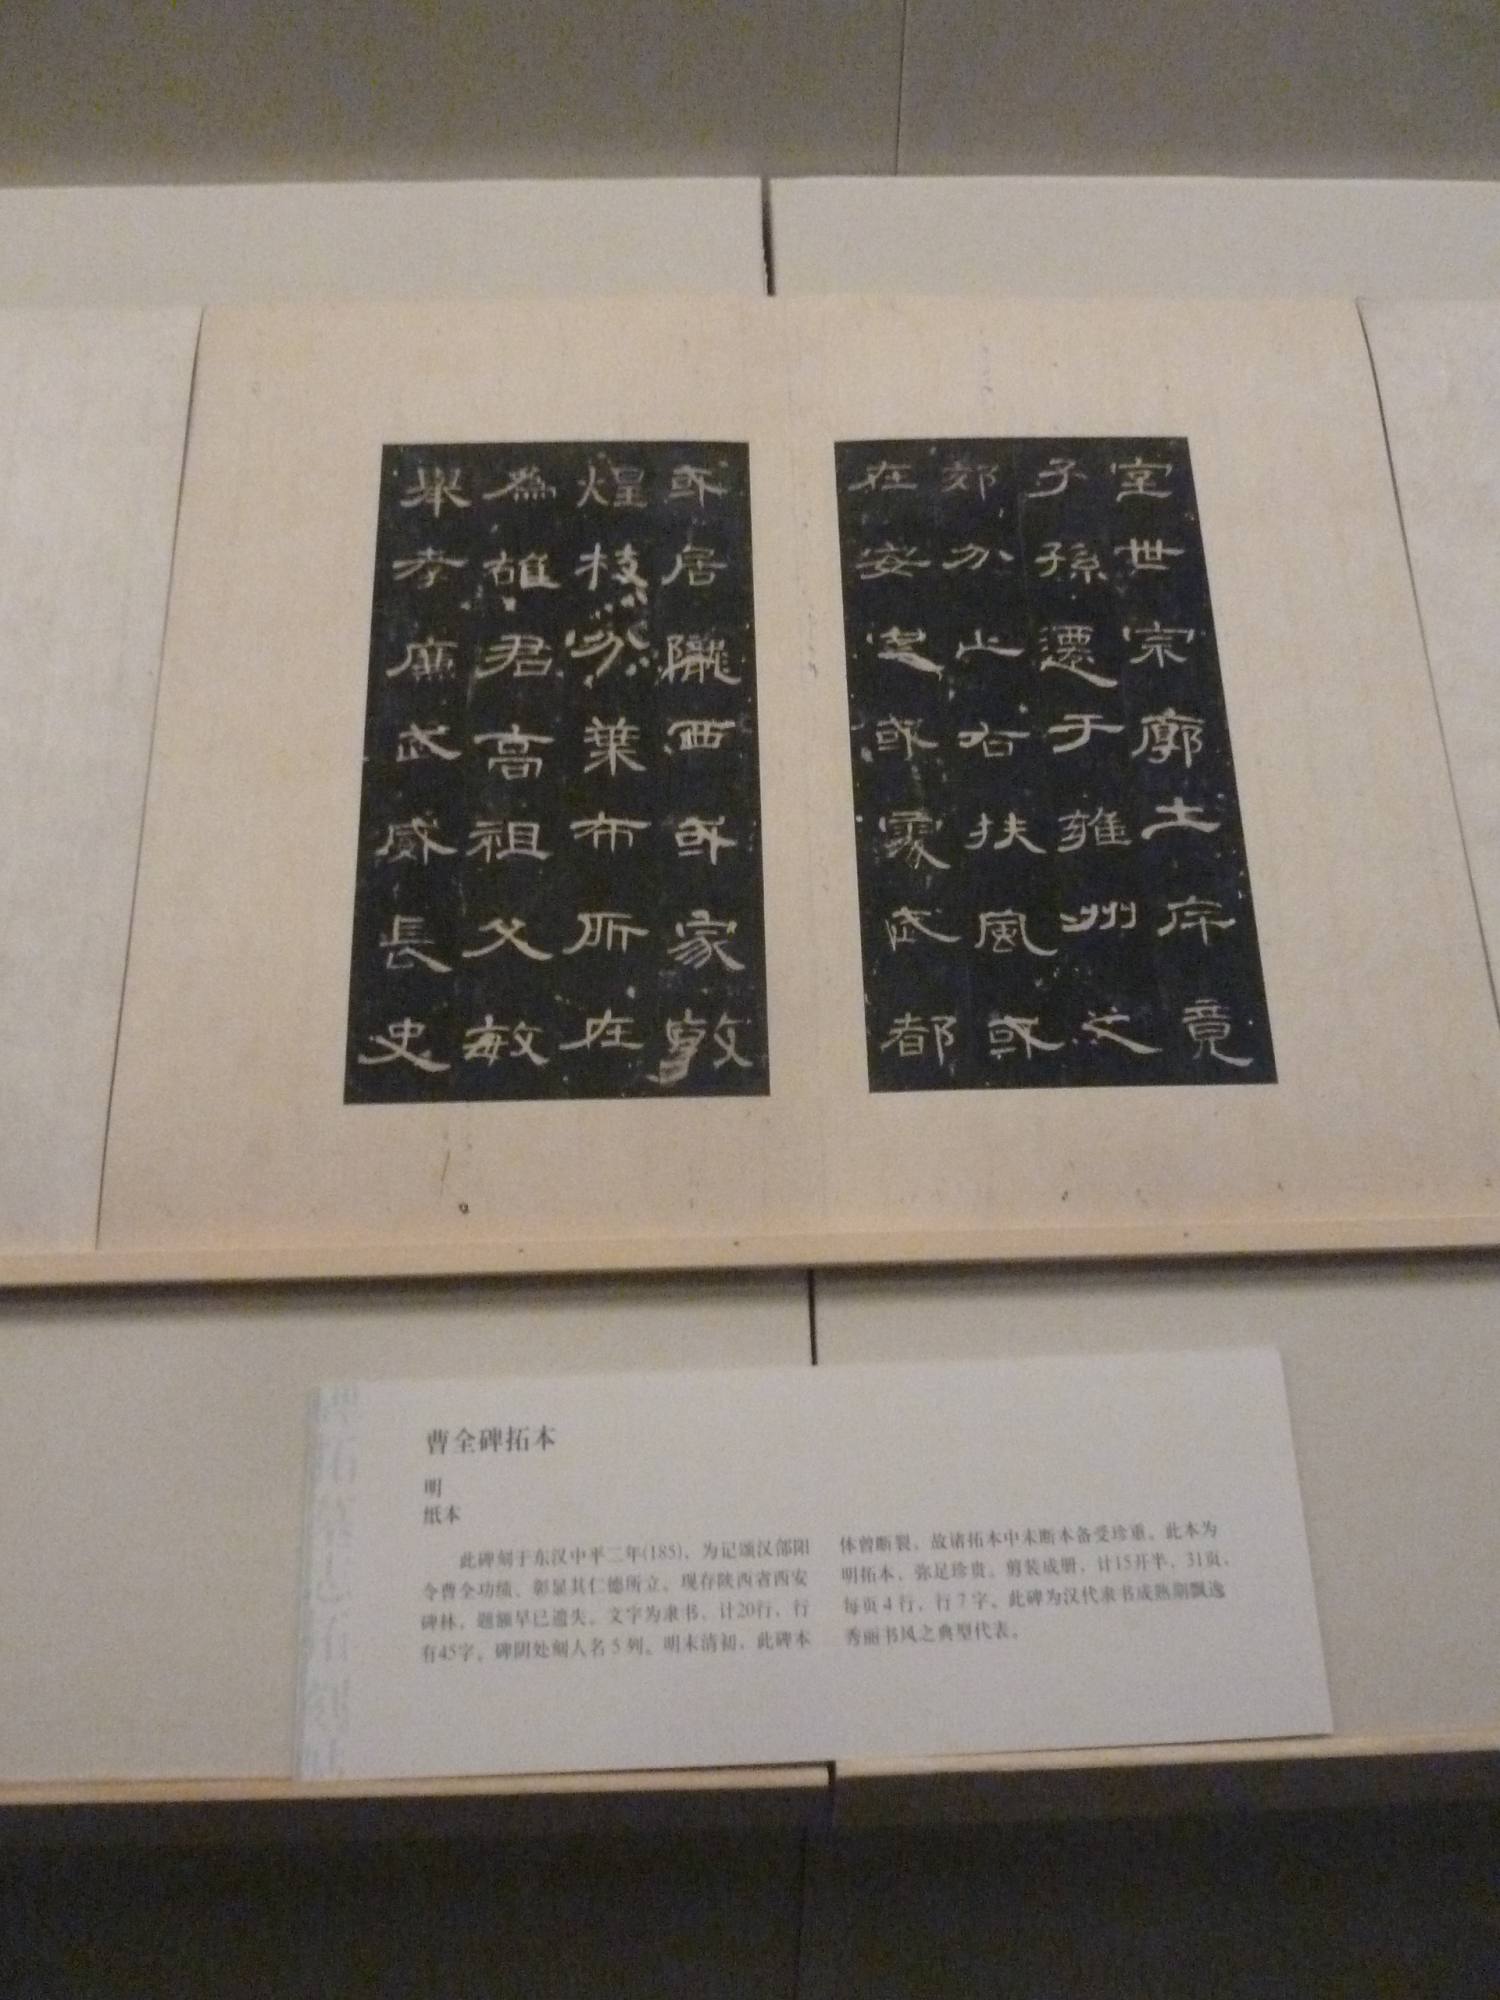 室世宗廓土斥竟
子孫遷于雍州之
郊分止右扶風或
在安定或處武都
或居隴西或家敦
煌枝分葉布所在
為雄君高祖父敏
舉孝廉武威長史
曹全碑拓本
明
纸本
此碑刻于东汉中平二年(185)，为记颂汉郃阳
令曹全功绩、彰显其仁德所立。现存陕西省西安
碑林，题额早已遗失。文字为隶书，计20行，行
有45字。碑阴处刻人名5列。明末清初，此碑本
体曾断裂，故诸拓本中未断本备受珍重。此本为
明拓本，弥足珍贵。剪装成册，计15开半，31页，
每页4行，行7字。此碑为汉代隶书成熟期飘逸
秀丽书风之典型代表。